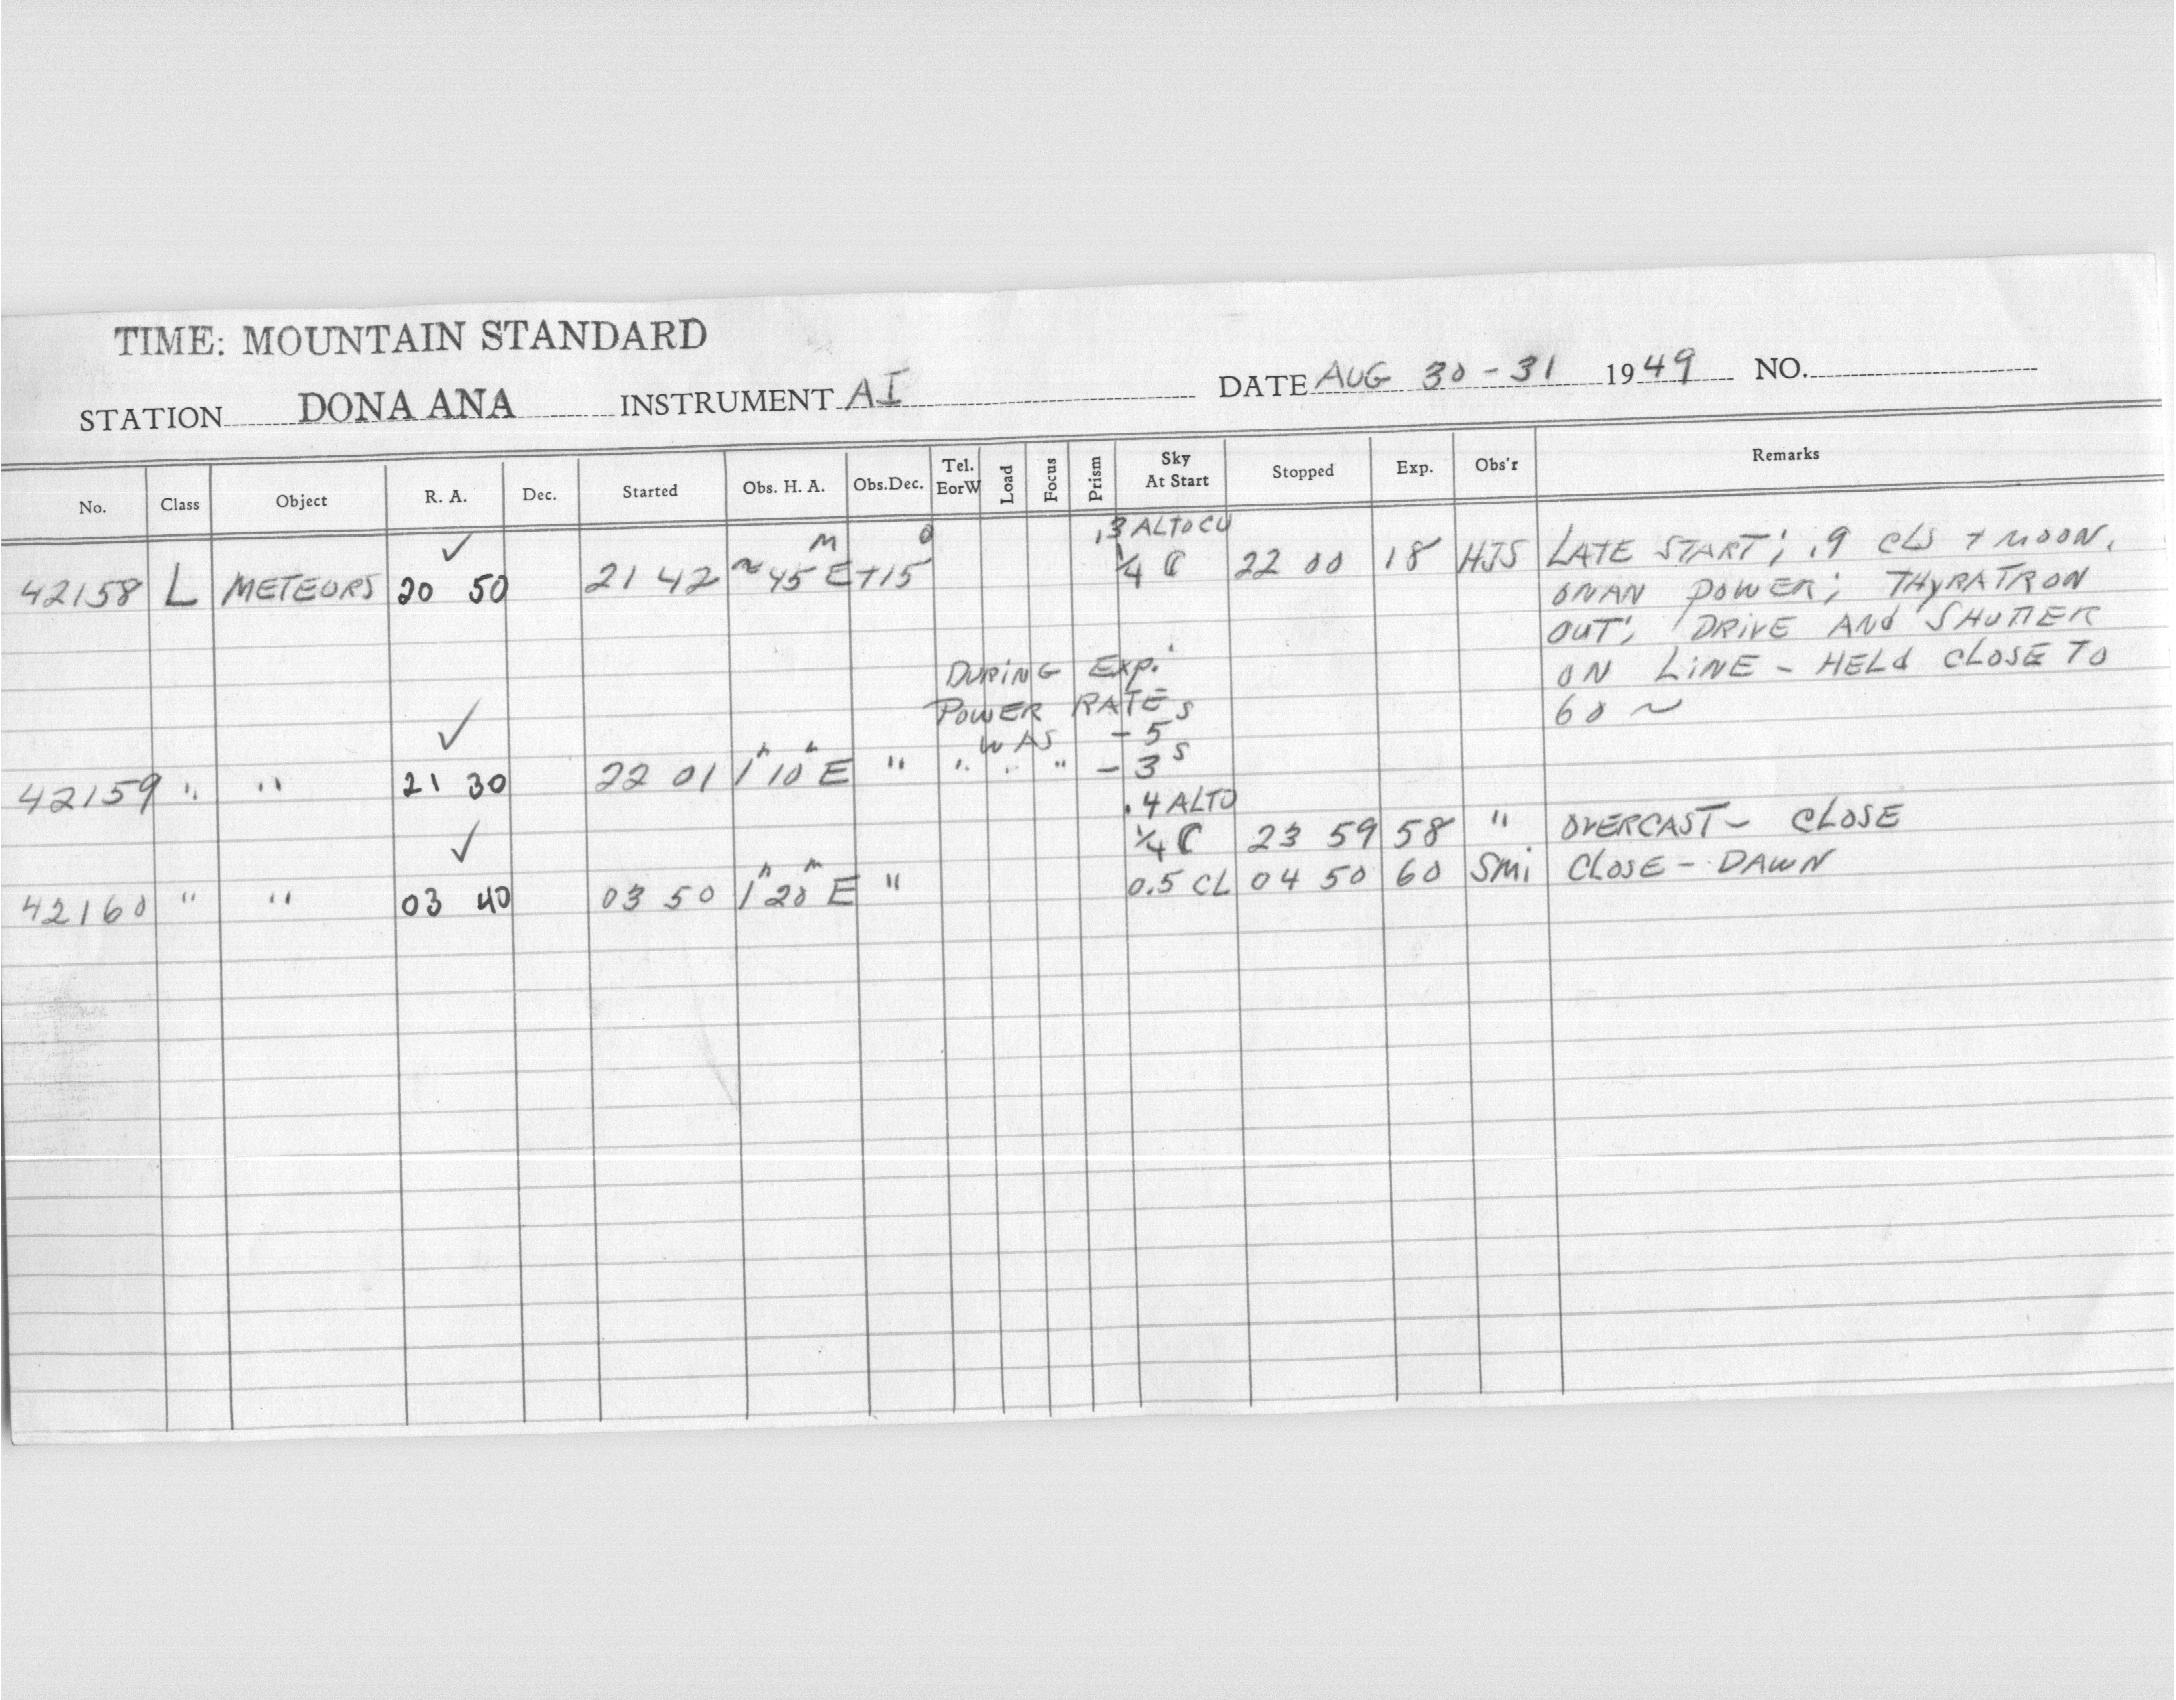 TIME: MOUNTAIN STANDARD
STATION DONA ANA INSTRUMENT AI DATE AUG 30-31 1949 NO.
No. Class Object R. A. Dec. Started Obs. H. A. Obs.Dec. Tel. EorW Load Focus Prism Sky At Start Stopped Exp. Obs'r Remarks
✓ .3 ALTOCU
42158 L METEORS 20 50 21 42 ~45ᵐ E +15° 1/4 ☾ 22 00 18 HJS LATE START; .9 CLS + MOON.
ONAN POWER; THYRATRON
OUT; DRIVE AND SHUTTER
DURING EXP. ON LINE - HELD CLOSE TO
POWER RATE 60 ~
✓ WAS -5ˢ
42159 " " 21 30 22 01 1ʰ10ᵐ E " " " " -3ˢ
.4 ALTO
✓ 1/4 ☾ 23 59 58 " OVERCAST - CLOSE
42160 " " 03 40 03 50 1ʰ20ᵐ E " 0.5 CL 04 50 60 Smi CLOSE - DAWN